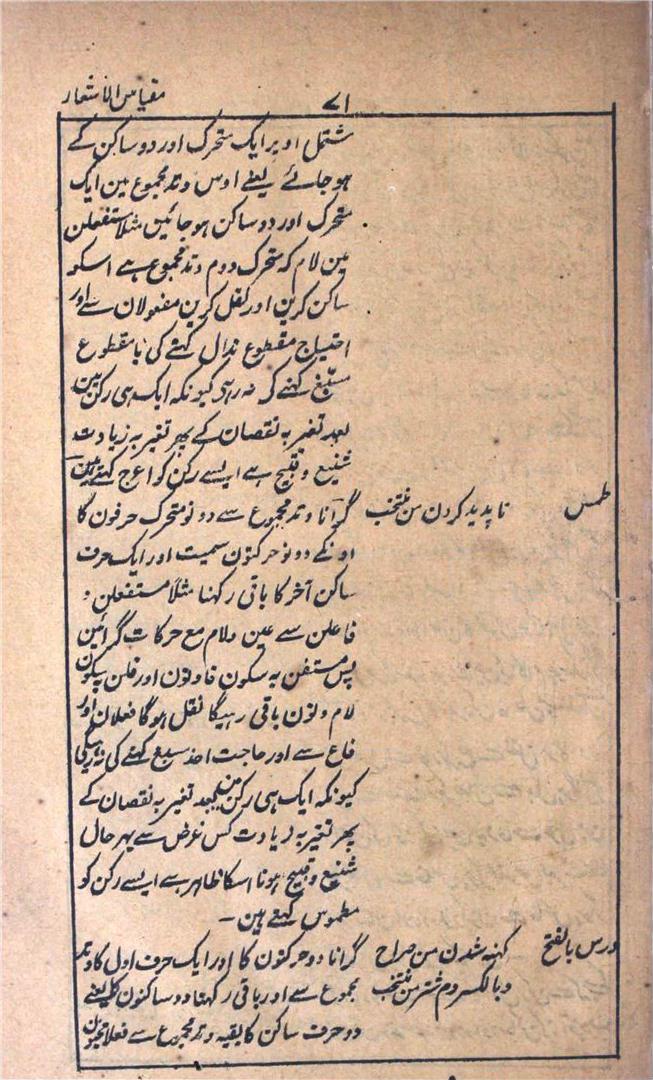 مقیاس الاشعار
۷۱
مشتمل اوپر ایک متحرک اور دو ساکن کے
ہو جائے یعنے اوس وتد مجموع مین ایک
متحرک اور دو ساکن ہو جائیں مثلاً مستفعلن
مین لام کہ متحرک دوم وتد مجموع ہے اسکو
ساکن کرین اور نقل کرین مفعولان سے اور
احتیاج مقطوع مذال کہنے کی یا مقطوع
مسبغ کہنے کہ نہ رہی کیونکہ ایک ہی رکن مین
بعد تغیر بہ نقصان کے پھر تغیر بہ زیادت
شنیع و قبیح ہے ایسے رکن کو اعرج کہتے ہین
طمس ناپدید کردن من منتخب گرانا وتد مجموع سے دونو متحرک حرفون کا
اونکے دونو حرکتون سمیت اور ایک حرف
ساکن آخر کا باقی رکھنا مثلاً مستفعلن و
فاعلن سے عین و لام مع حرکات گرائین
پس مستفن بہ سکون فا و نون اور فلن بسکون
لام و نون باقی رہیگا نقل ہوگا فعلان اور
فاع سے اور حاجت احذ مسبغ کہنے کی نہ رہیگی
کیونکہ ایک ہی رکن مین بعد تغیر بہ نقصان کے
پھر تغیر بہ زیادت کس غرض سے بہر حال
شنیع و قبیح ہونا اسکا ظاہر ہے ایسے رکن کو
مطموس کہتے ہین۔
درس بالفتح کہنہ شدن من صراح گرانا دو حرکتون کا اور ایک حرف اول کا وتد
و بالکسر دم شتر من منتخب مجموع سے اور باقی رکھنا دو ساکنون کا یعنے
دو حرف ساکن کا بقیہ وتد مجموع سے فعلاتن